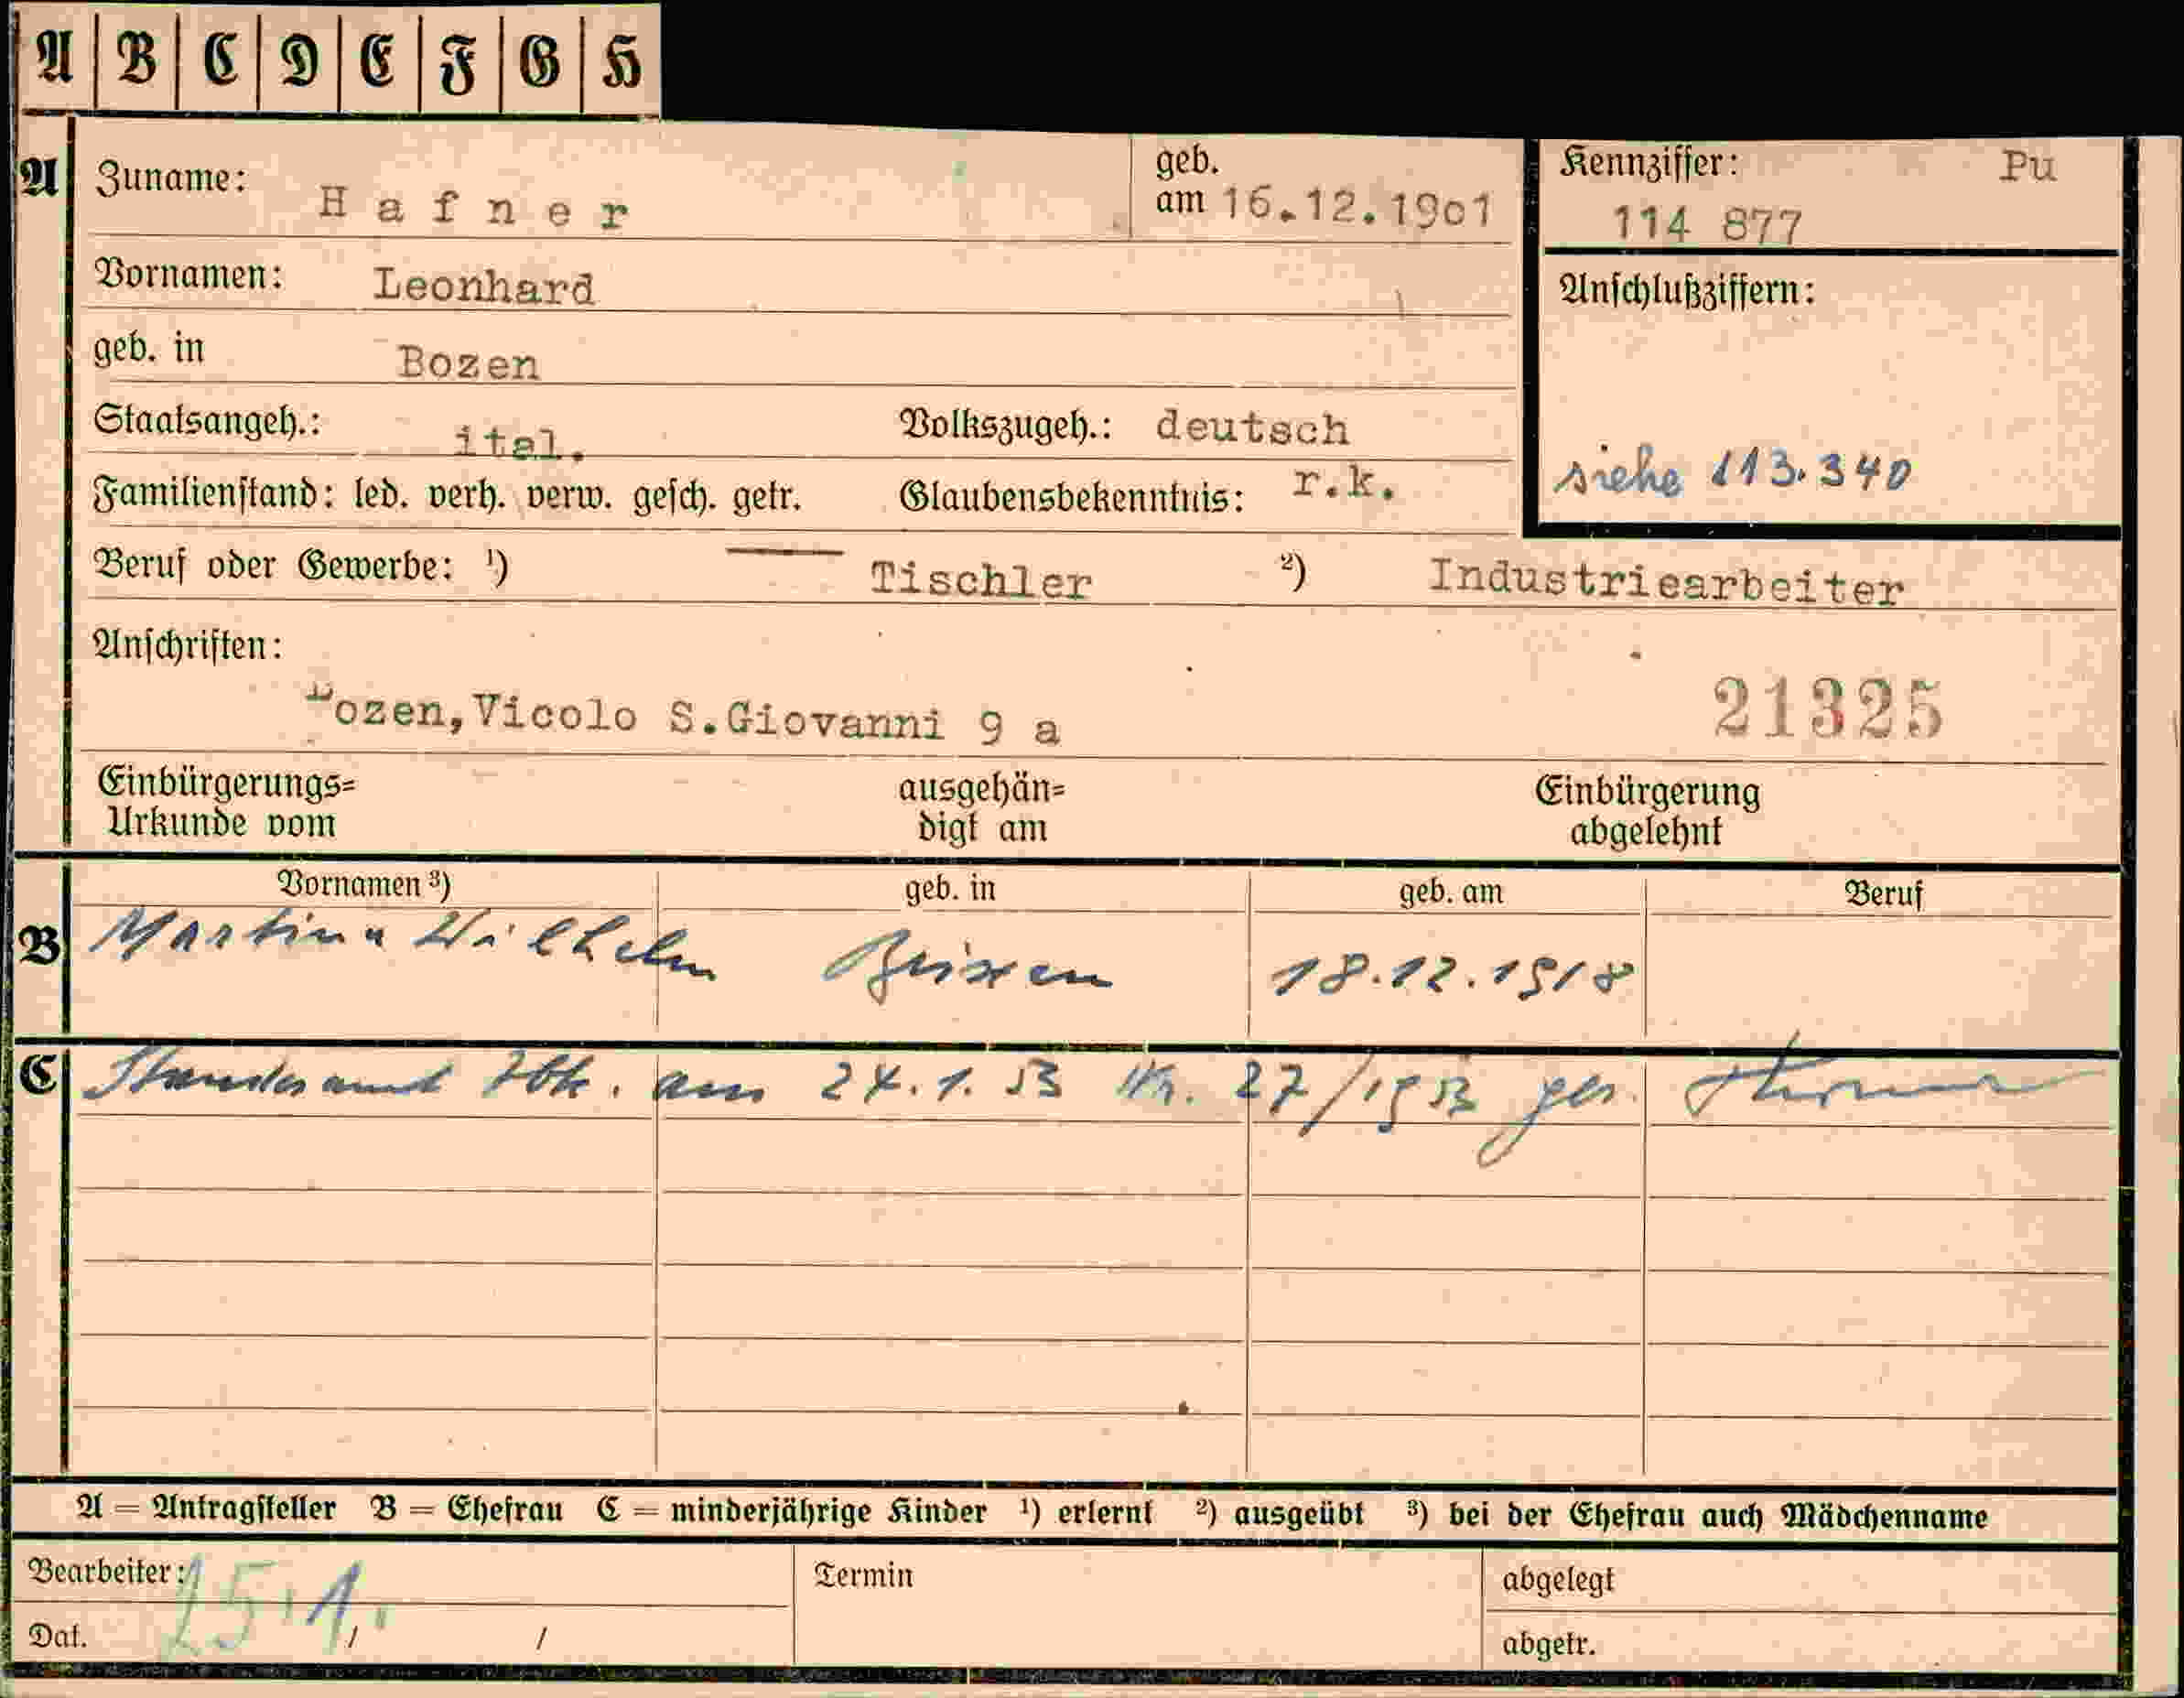 A B C D E F G H
A Zuname: Hafner geb. am 16.12.1901 Kennziffer: Pu
114 877
Vornamen: Leonhard Anschlußziffern:
geb. in Bozen
Staatsangeh.: ital. Volkszugeh.: deutsch
siehe 113.340
Familienstand: led. verh. verw. gesch. getr. Glaubensbekenntnis: r.k.
Beruf oder Gewerbe: ¹) Tischler ²) Industriearbeiter
Anschriften:
Bozen, Vicolo S.Giovanni 9 a 21325
Einbürgerungs= ausgehän= Einbürgerung
Urkunde vom digt am abgelehnt
Vornamen ³) geb. in geb. am Beruf
B Wilhelm Brixen 18.12.1918
C Standesamt am 24.1.53 Nr. 27/1953
A = Antragsteller B = Ehefrau C = minderjährige Kinder ¹) erlernt ²) ausgeübt ³) bei der Ehefrau auch Mädchenname
Bearbeiter: 25.1. Termin abgelegt
Dat. / / abgetr.